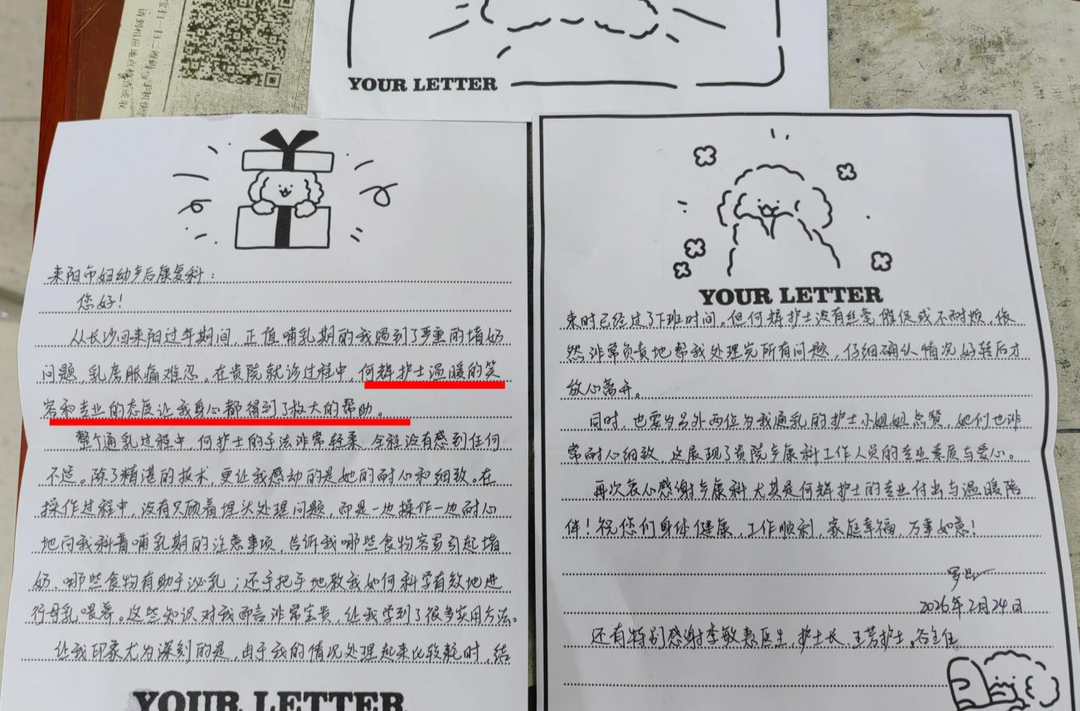 YOUR LETTER
耒阳市妇幼产后康复科：
您好！
从长沙回耒阳过年期间，正值哺乳期的我遇到了严重的堵奶
问题，乳房胀痛难忍。在贵院就诊过程中，何辉护士温暖的笑
容和专业的态度让我身心都得到了极大的帮助。
整个通乳过程中，何护士的手法非常轻柔，全程没有感到任何
不适。除了精湛的技术，更让我感动的是她的耐心和细致。在
操作过程中，没有只顾着埋头处理问题，而是一边操作一边耐心
地向我科普哺乳期的注意事项，告诉我哪些食物容易引起堵
奶，哪些食物有助于泌乳；还手把手地教我如何科学有效地进
行母乳喂养。这些知识对我而言非常宝贵，让我学到了很多实用方法。
让我印象尤为深刻的是，由于我的情况处理起来比较耗时，结
YOUR LETTER
YOUR LETTER
束时已经过了下班时间。但何辉护士没有丝毫催促或不耐烦，依
然非常负责地帮我处理完所有问题，仔细确认情况好转后才
放心离开。
同时，也要为另外两位为我通乳的护士小姐姐点赞，她们也非
常耐心细致，这展现了贵院产康科工作人员的专业素质与爱心。
再次衷心感谢产康科尤其是何辉护士的专业付出与温暖陪
伴！祝您们身体健康，工作顺利，家庭幸福，万事如意！
2026年2月24日
还有特别感谢李敏惠医生，护士长，王芳护士。谷主任